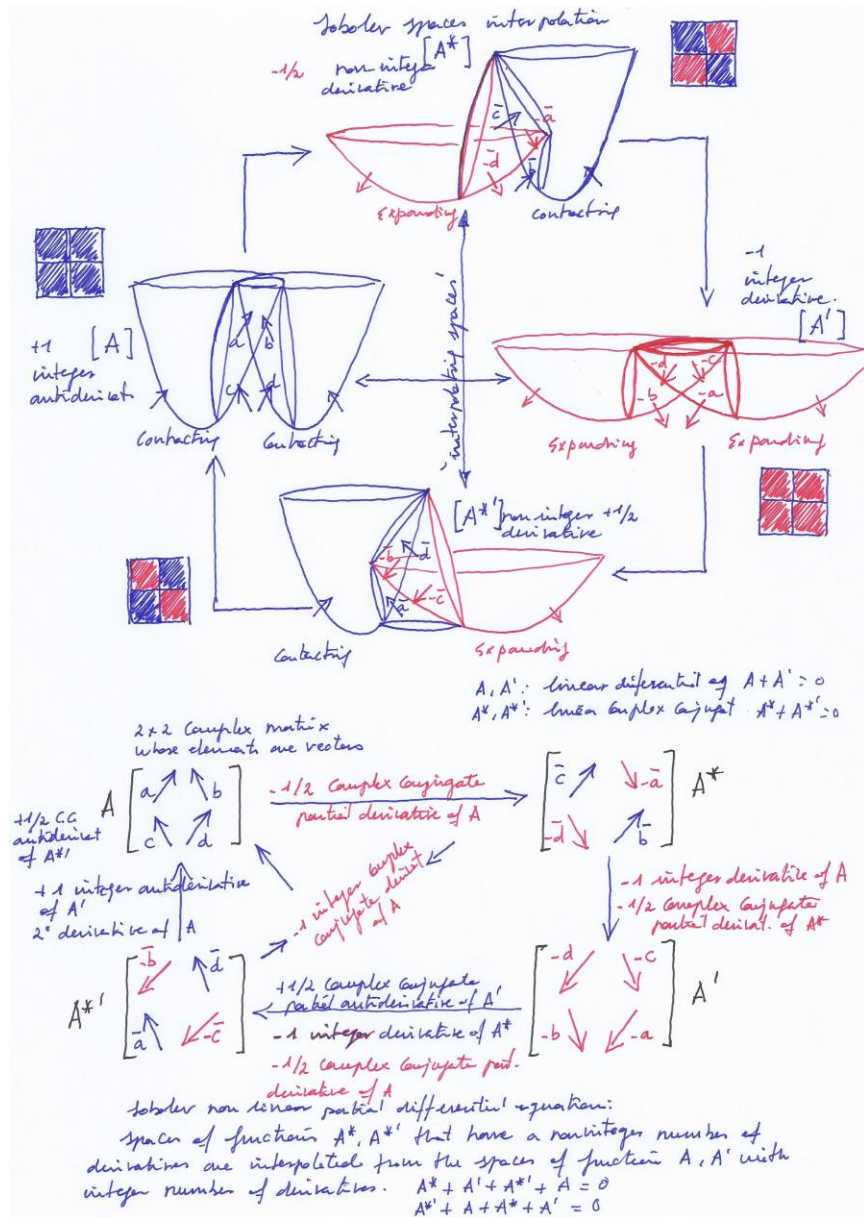 Sobolev spaces interpolation
[A*]
-1/2 non-integer
derivative
c̄
-ā
-d̄
b̄
Expanding
Contracting
-1
integer
derivative.
[A']
+1 [A]
integer
antiderivat.
a
b
c
d
Contracting Contracting
'interpolating spaces'
-d
-c
-b
-a
Expanding Expanding
[A*'] non integer +1/2
derivative
-b̄
d̄
ā
-c̄
Contracting
Expanding
A, A': linear differential of A + A' = 0
A*, A*': linear complex conjugat. A* + A*' = 0
2 x 2 complex matrix
whose elements are vectors
A
a b
c d
-1/2 Complex Conjugate
partial derivative of A
c̄ -ā
-d̄ b̄
A*
+1/2 CC
antiderivat
of A*'
+1 integer antiderivative
of A'
2° derivative of A
-1 integer complex
conjugate derivat.
of A
-1 integer derivative of A
-1/2 Complex Conjugate
partial derivat. of A*
A*'
-b̄ d̄
ā -c̄
+1/2 Complex Conjugate
partial antiderivative of A'
-1 integer derivative of A*
-1/2 Complex Conjugate part.
derivative of A
-d -c
-b -a
A'
Sobolev non linear partial differential equation:
spaces of functions A*, A*' that have a noninteger number of
derivatives are interpolated from the spaces of function A, A' with
integer number of derivatives. A* + A' + A*' + A = 0
A*' + A + A* + A' = 0